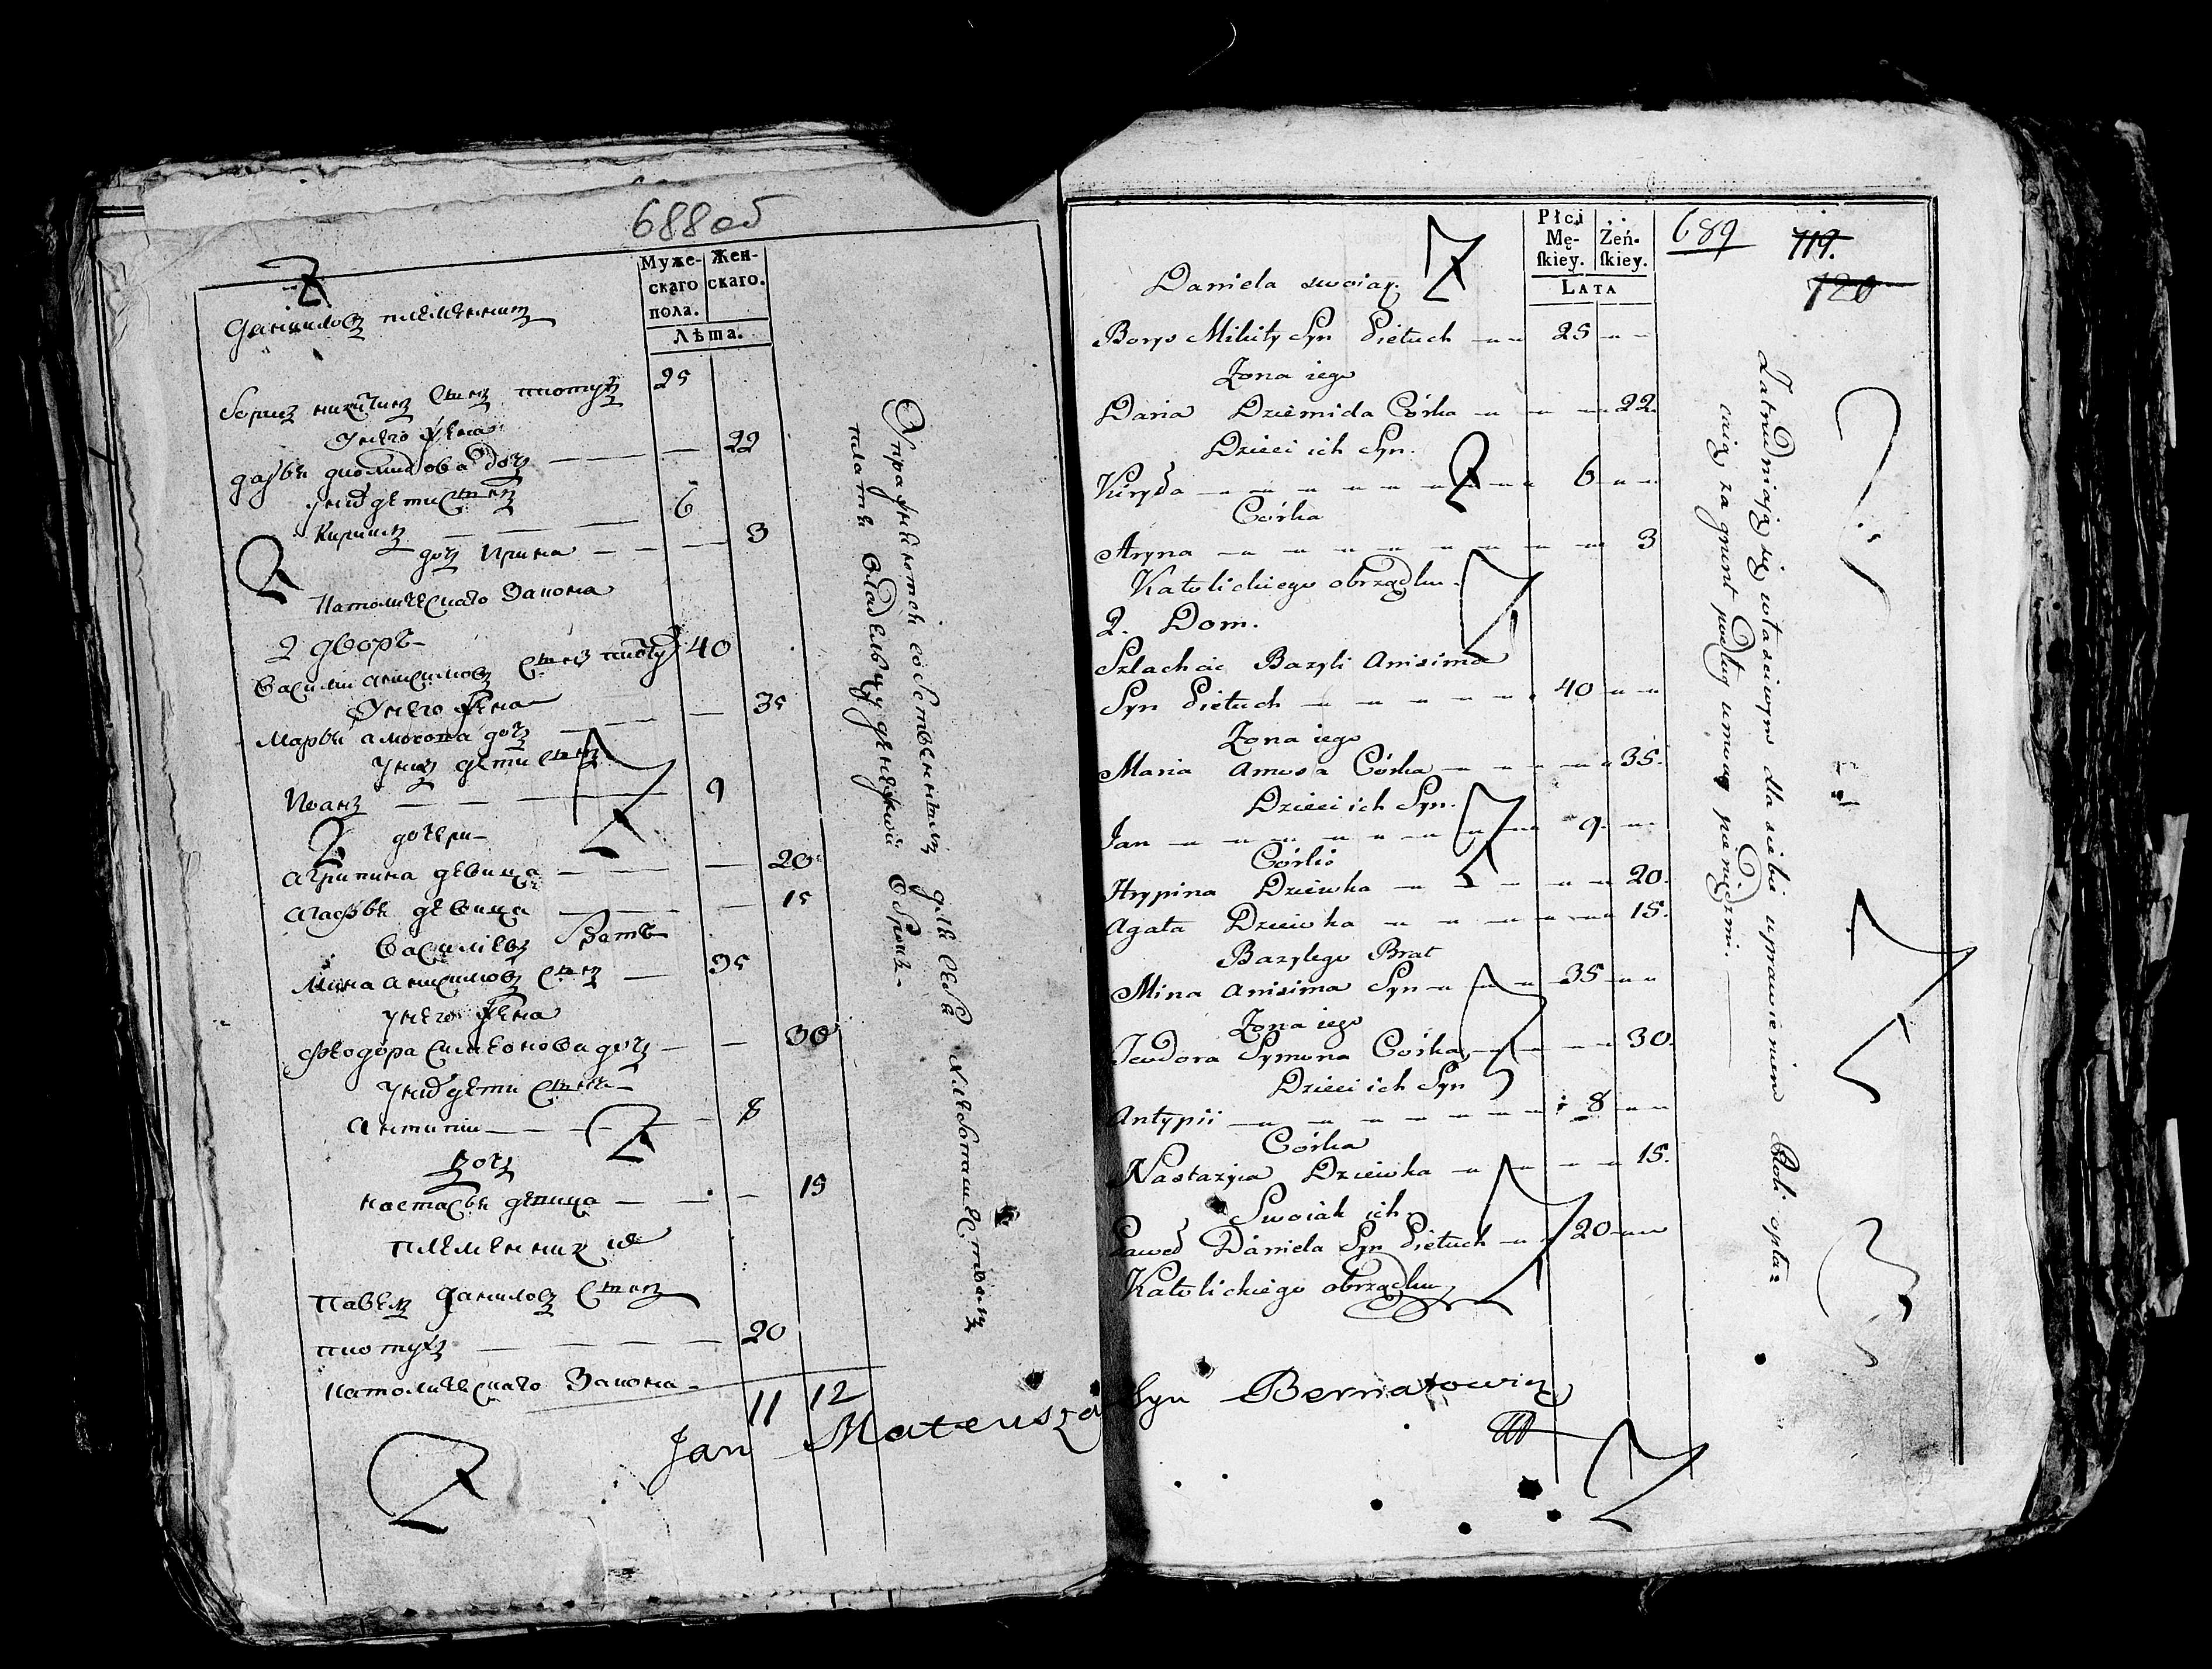 688об
Муже-
скаго
пола.
Жен-
скаго.
Лѣта.
Даниловъ племенникъ
Борисъ Никитинъ сынъ Пиотухъ 25
У него жена
Дарья Диомидова дочь — — — 22
У них дети сынъ
Кирилъ — — — 6
дочь Ирина — — — 3
Католическаго Закона
2 дворъ
Василий Анисимовъ сынъ Пиотух 40
У него жена
Марья Амосова дочь — — 35
У нихъ дети сынъ
Иванъ — — — 9
дочери
Агрипина девица — — — 20
Агафья девица — — — 15
Васильевъ братъ
Мина Анисимовъ сынъ — 35
У него жена
Феодора Симеонова дочь — — 30
У них дети сынъ
Антипии — — — 8
дочь
Настасья девица — — — 15
племенник их
Павелъ Даниловъ сынъ
Пиотухъ — — — 20
Католическаго Закона
11 12
Упражняются собственнымъ для себя хлебопашествомъ
платя владельцу денежной оброкъ
Jan Mateusza Syn Bernatowicz
689
119.
120
Płci
Mę-
ſkiey.
Żeń-
ſkiey.
LATA
Daniela swoiak
Borys Mikity Syn Pietuch 25
Żona iego
Daria Dziemida Córka 22
Dzieci ich Syn.
Kiryła 6
Córka
Aryna 3
Katolickiego obrządku.
2. Dom.
Szlachcic Bazyli Anisima
Syn Pietuch 40
Żona iego
Maria Amosa Córka 35.
Dzieci ich Syn.
Jan 9.
Córki
Hrypina Dziewka 20.
Agata Dziewka 15.
Bazylego Brat
Mina Anisima Syn 35
Żona iego
Teodora Symona Córka 30.
Dzieci ich Syn
Antypii 8
Córka
Nastazyia Dziewka 15.
Swoiak ich
Paweł Daniela Syn Pietuch 20
Katolickiego obrządku
Zatrudniaią się właściwym dla siebie uprawieniem Roli opła=
caią za grunt podług umowy pieniędzmi.